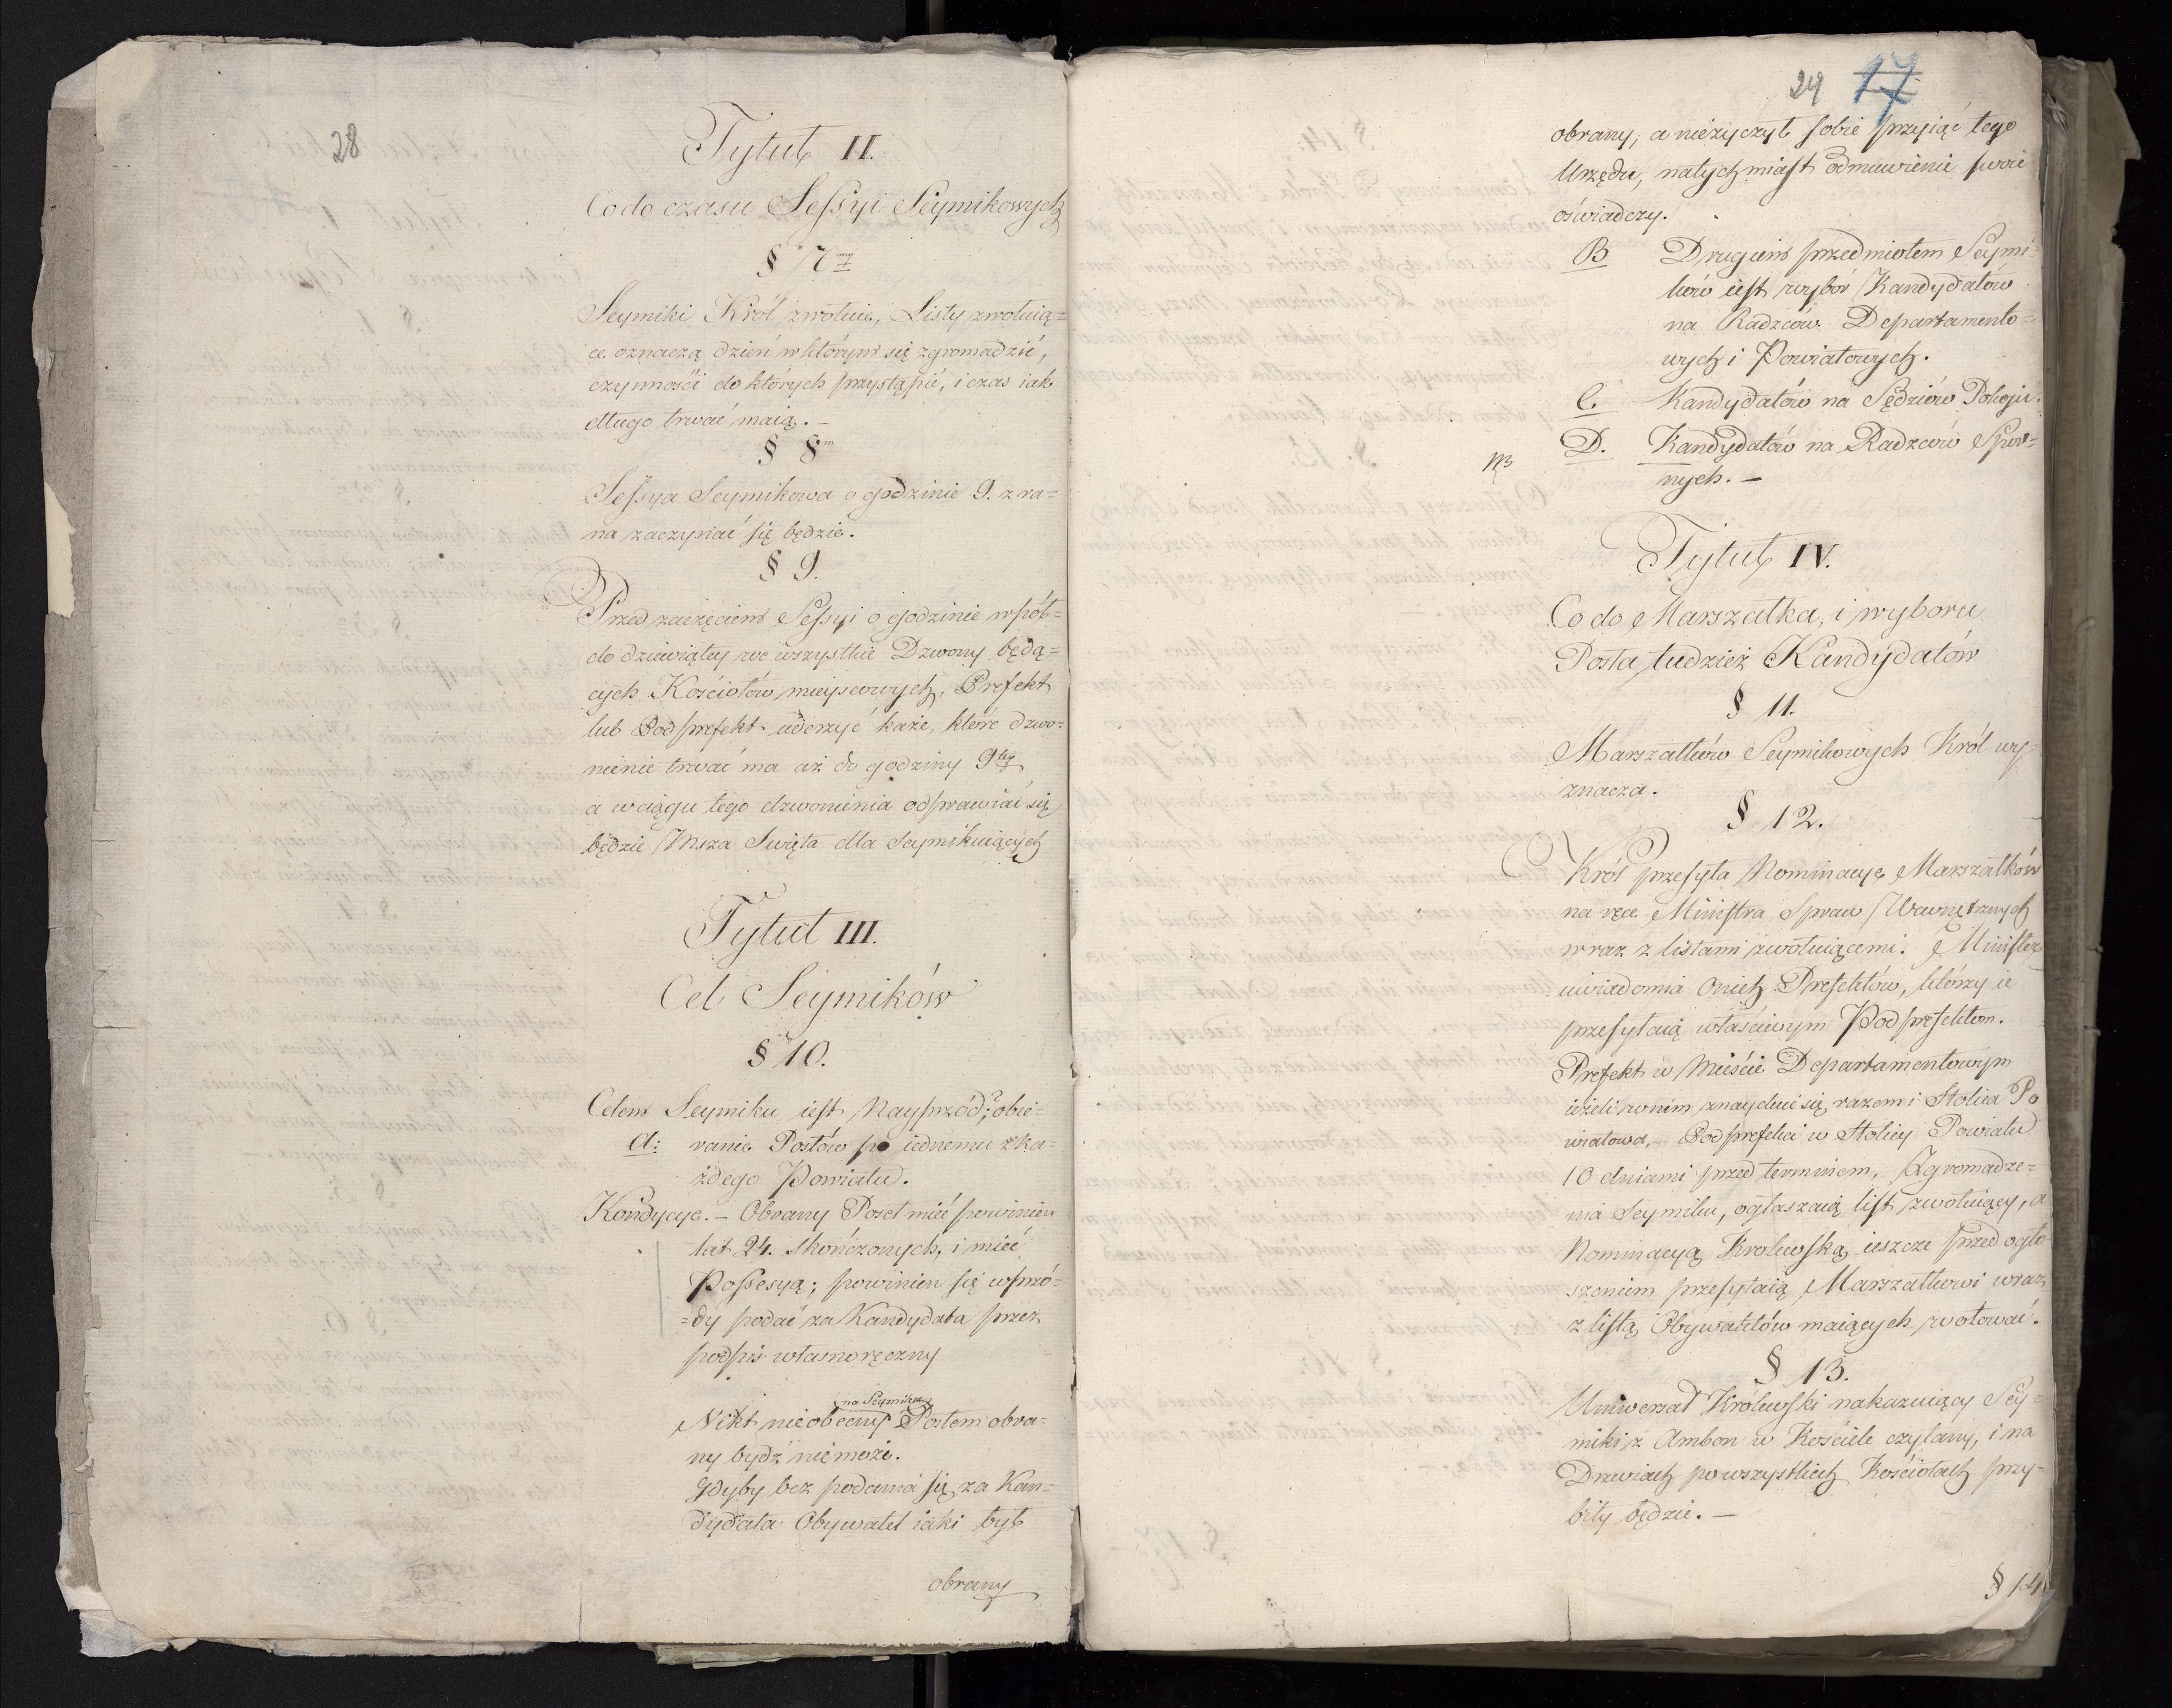 28
Tytuł II.
Co do czasu Sessyi Seymikowych
§ 7my
Seymiki Król zwołuie, Listy zwołuią=
ce oznaczą dzień w którym się zgromadzić,
czynności do których przystąpić, i czas iak
długo trwać maią. –
§ 8m
Sessya Seymikowa o godzinie 9. z ra=
na zaczynać się będzie.
§ 9.
Przed zaczęciem Sessyi o godzinie wpół=
do dziewiątey we wszystkie Dzwony będą=
cych Kościołów mieyscowych, Prefekt
lub Podprefekt uderzyć każe, które dzwo=
nienie trwać ma aż do godziny 9tey
a w ciągu tego dzwonienia odprawiać się
będzie Msza Swięta dla Seymikuiących
Tytuł III.
Cel Seymików
§ 10.
Celem Seymiku iest Nayprzód; obie=
A: ranie Posłów po iednemu z ka=
żdego Powiatu.
Kondycye. – Obrany Poseł mieć powinien
lat 24. skończonych, i mieć
Possesyą; powinien się wprzó=
=dy podać za Kandydata przez
podpis własnoręczny
na Seymiku
Nikt nieobecny Posłem obra=
ny bydź nie może.
Gdyby bez podania się za Kan=
dydata Obywatel iaki był
obrany
29 17
obrany, a nieżyczył sobie przyiąć tego
Urzędu, natychmiast odmówienie swoie
oświadczy.
B Drugiem przedmiotem Seymi=
ków iest wybór Kandydatów
na Radzców Departamento=
wych i Powiatowych.
C. Kandydatów na Sędziów Pokoju.
NB D. Kandydatów na Radzców Spor=
nych. –
Tytuł IV.
Co do Marszałka, i wyboru
Posła tudzież Kandydatów
§ 11.
Marszałków Seymikowych Król wy=
znacza.
§ 12.
Król przesyła Nominacye Marszałków
na ręce Ministra Spraw Wewnętrznych
wraz z listami zwołuiącemi. Minister
uwiadomia onich Prefektów, którzy ie
przesyłaią właściwym Podprefektom.
Prefekt w Mieście Departamentowym
ieżeli wnim znayduie się razem i Stolica Po
wiatowa, – Podprefekci w Stolicy Powiatu
10 dniami przed terminem, Zgromadze=
nia Seymiku, ogłaszaią list zwołuiący, a
Nominacyą Krolewską ieszcze przed ogło
szeniem przesyłaią Marszałkowi wraz
z listą Obywatelów maiących wotować.
§ 13.
Uniwersał Królewski nakazuiący Sey=
miki z Ambon w Kościele czytany, i na
Drzwiach po wszystkich Kościołach przy=
bity będzie. –
§ 14